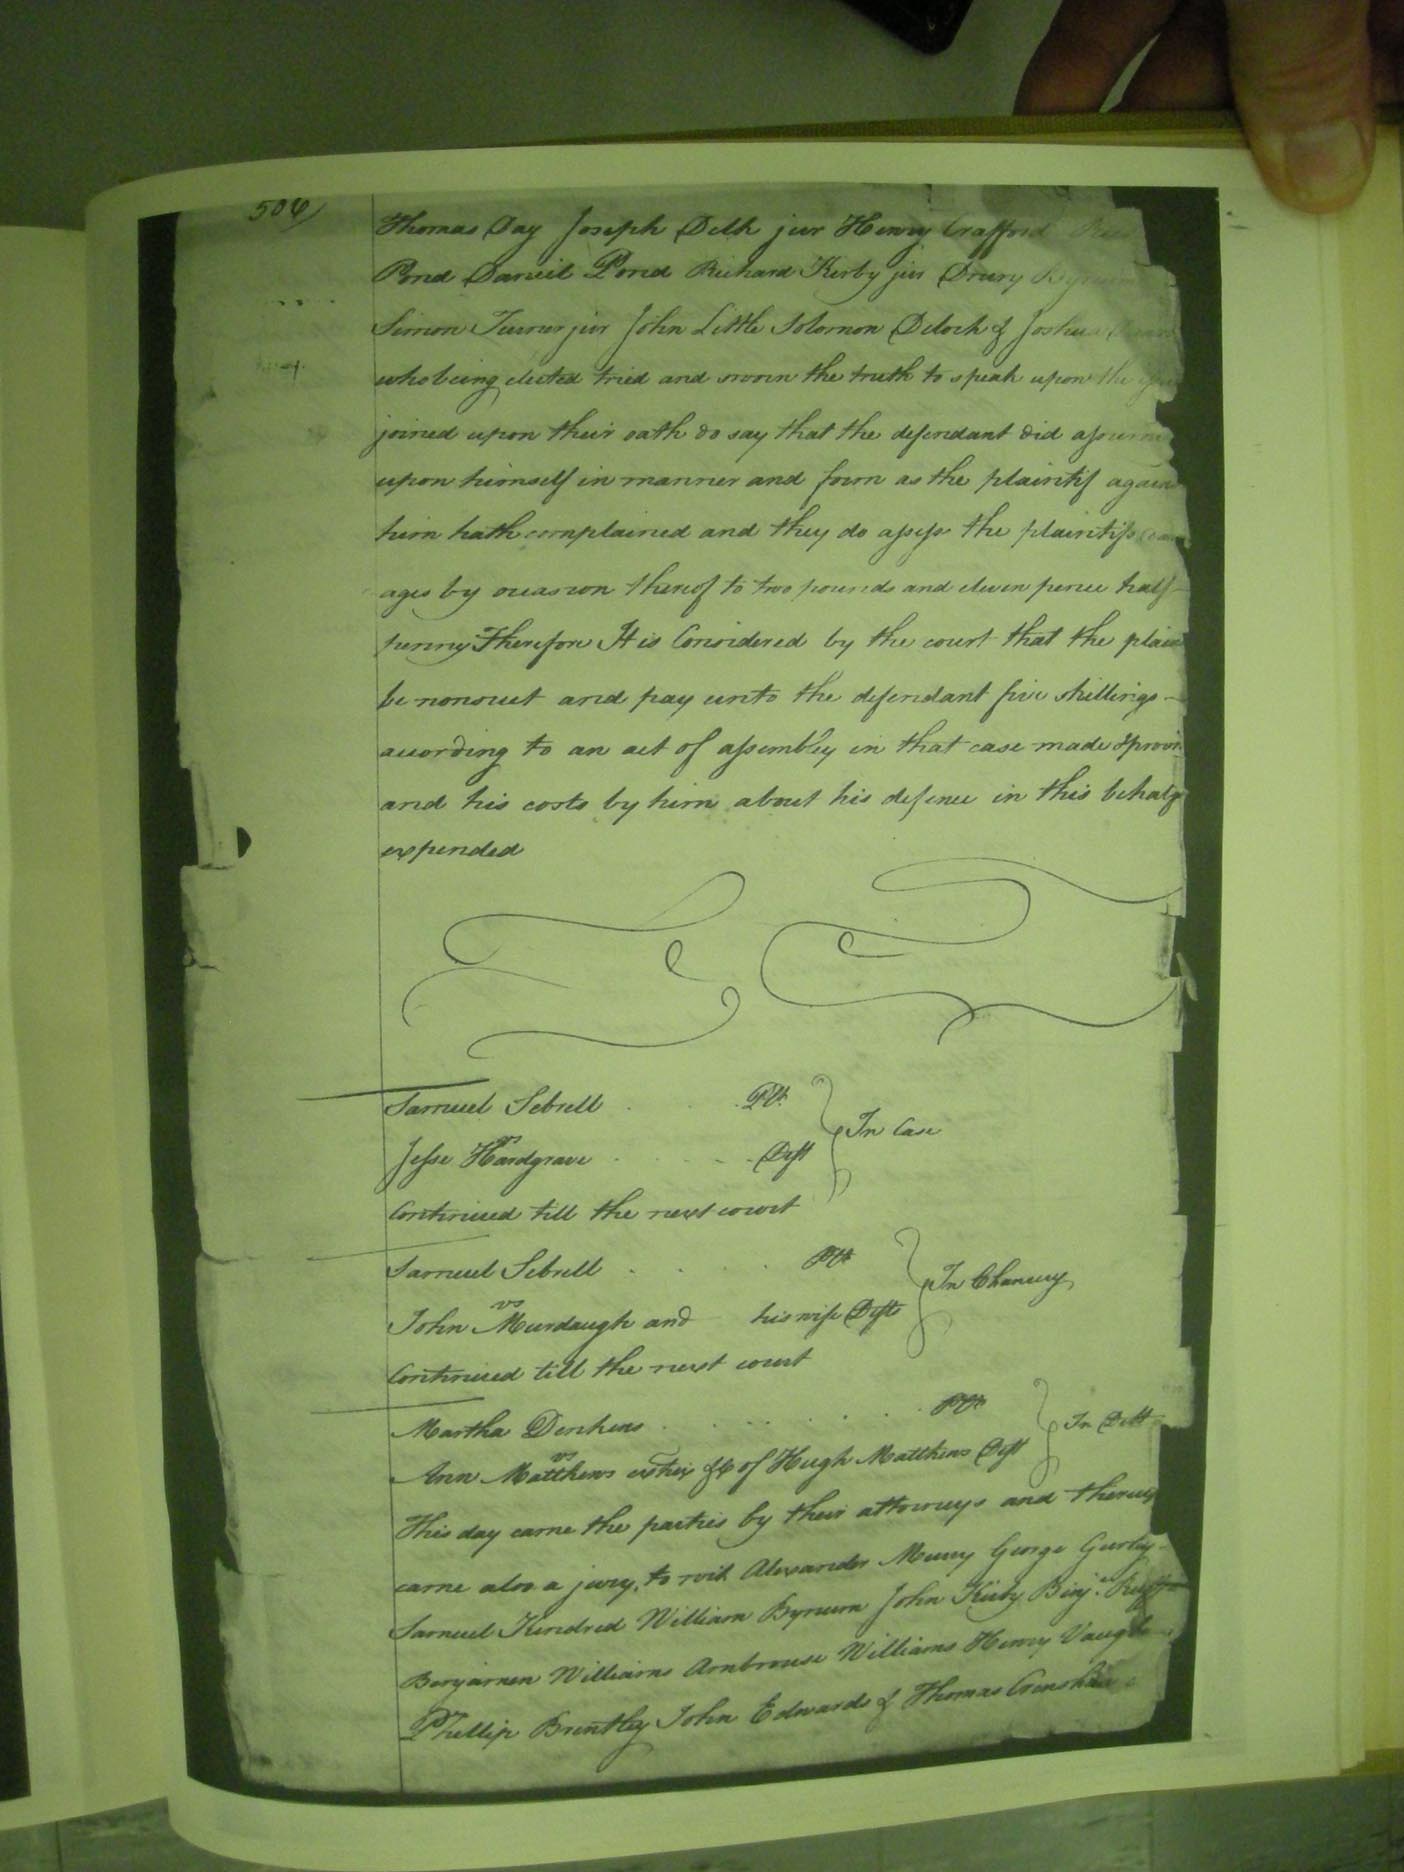 506
Thomas Day Joseph Delk jur Henry Crafford
Pond Daniel Pond Richard Kirby jur Drury Bynum
Simon Turner jur John Little Solomon Deloch & Joshua
who being elected tried and sworn the truth to speak upon the
joined upon their oath do say that the defendant did assume
upon himself in manner and form as the plaintif against
him hath complained and they do assess the plaintifs
ages by occasion thereof to two pounds and eleven pence half
penny Therefore It is Considered by the court that the plain
be nonsuet and pay unto the defendant five shillings
according to an act of assembly in that case made & provi
and his costs by him about his defence in this behalf
expended
Samuel Sebrell Plt.
vs In Case
Jesse Hardgrave Deft
Continued till the next court
Samuel Sebrell Plt
vs In Chancery
John Murdaugh and his wife Defts
Continued till the next court
Martha Denkins Plt
vs In Debt
Ann Matthews extrix &c of Hugh Matthews Deft
This day came the parties by their attorneys and thereup
came also a jury, to wit Alexander Murry George Gurley
Samuel Kindred William Bynum John Kirby Binja.
Benjamen Williams Ambrouse Williams Henry Vaugh
Phillip Brantley John Edwards & Thomas Crenshaw